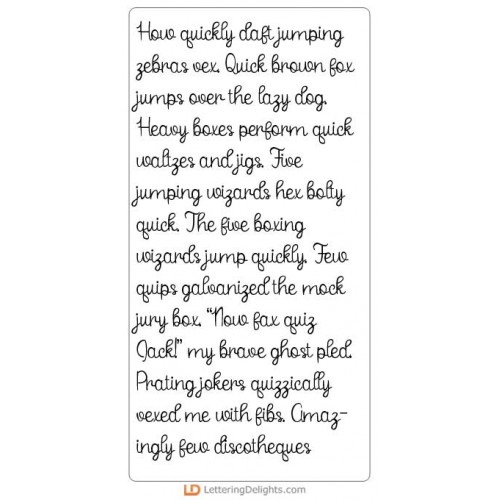 How quickly daft jumping
zebras vex. Quick brown fox
jumps over the lazy dog.
Heavy boxes perform quick
waltzes and jigs. Five
jumping wizards hex bolty
quick. The five boxing
wizards jump quickly. Few
quips galvanized the mock
jury box. "Now fax quiz
Jack!" my brave ghost pled.
Prating jokers quizzically
vexed me with fibs. Amaz-
ingly few discotheques
LD LetteringDelights.com